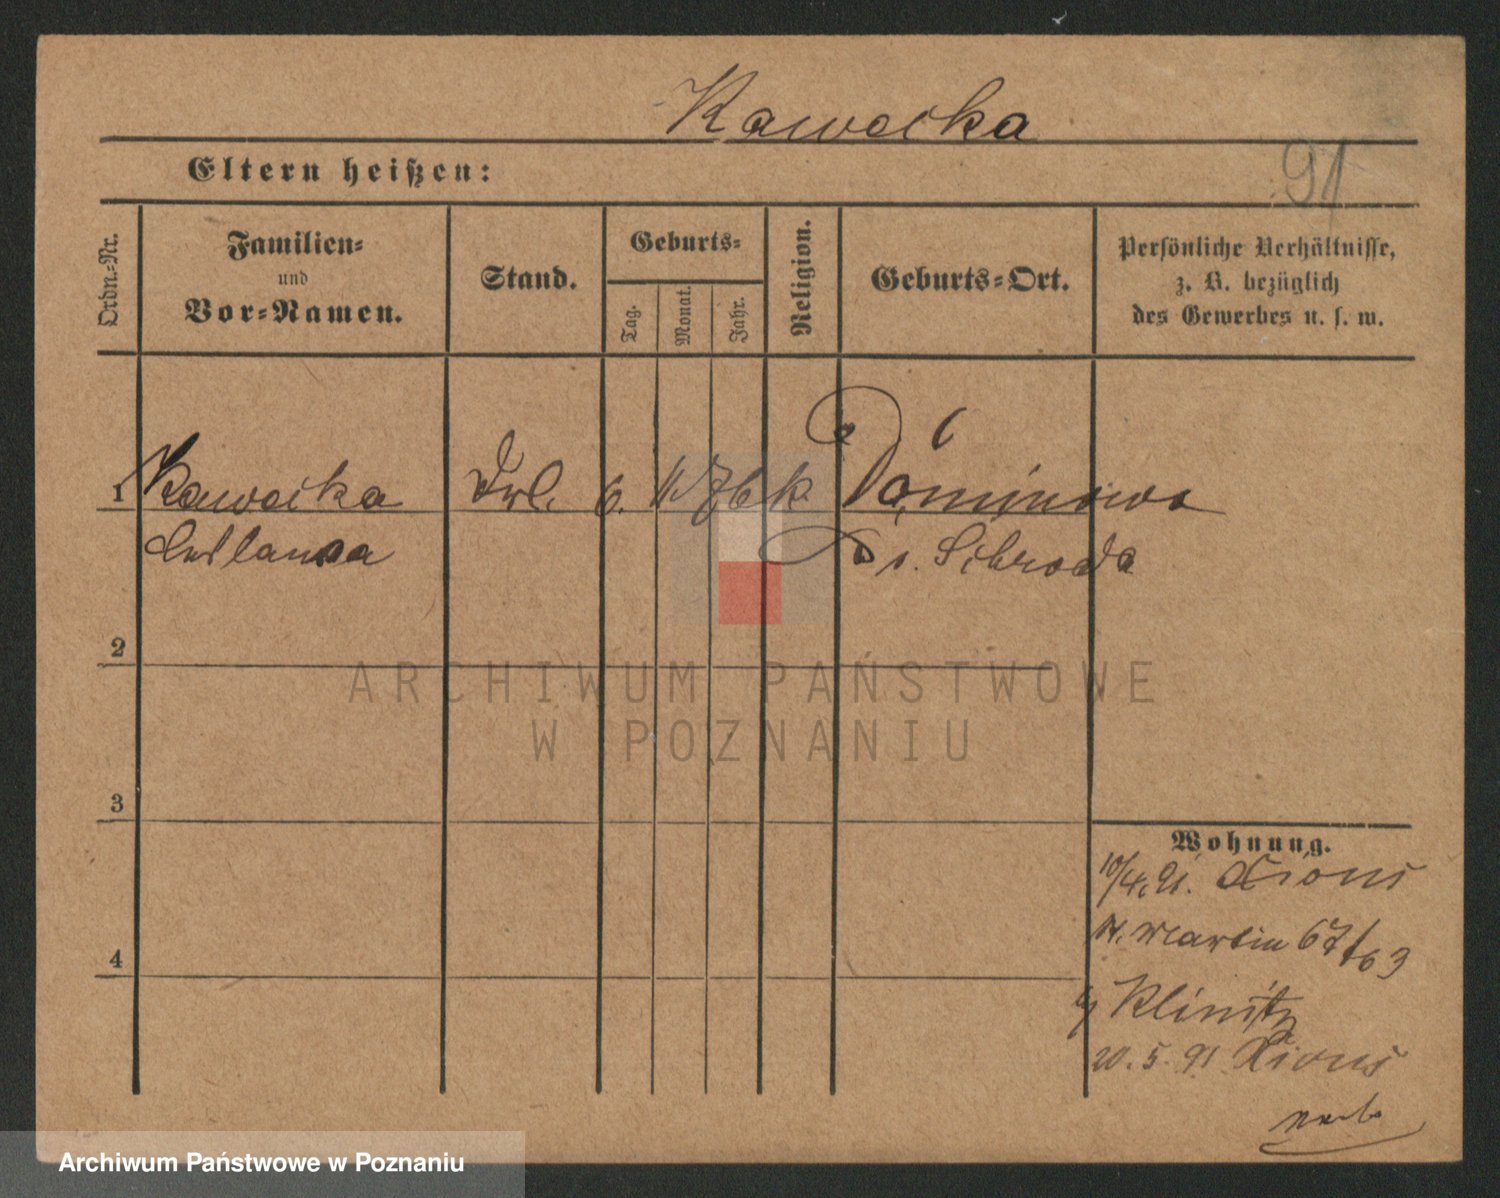 Kawecka
Eltern heißen:
91
Ordn.-Nr.
Familien-
und
Vor-Namen.
Stand.
Geburts-
Tag.
Monat.
Jahr.
Religion.
Geburts-Ort.
Persönliche Verhältnisse,
z. B. bezüglich
des Gewerbes u. s. w.
1 Kawecka Frl. 6. 11. 76 k Dominowo
Kr. Schroda
2
3
4
Wohnung.
10/4. 91. Xions
St. Martin 67/63
b/ Klinitz
20. 5. 91 Xions
ARCHIWUM PAŃSTWOWE
W POZNANIU
Archiwum Państwowe w Poznaniu